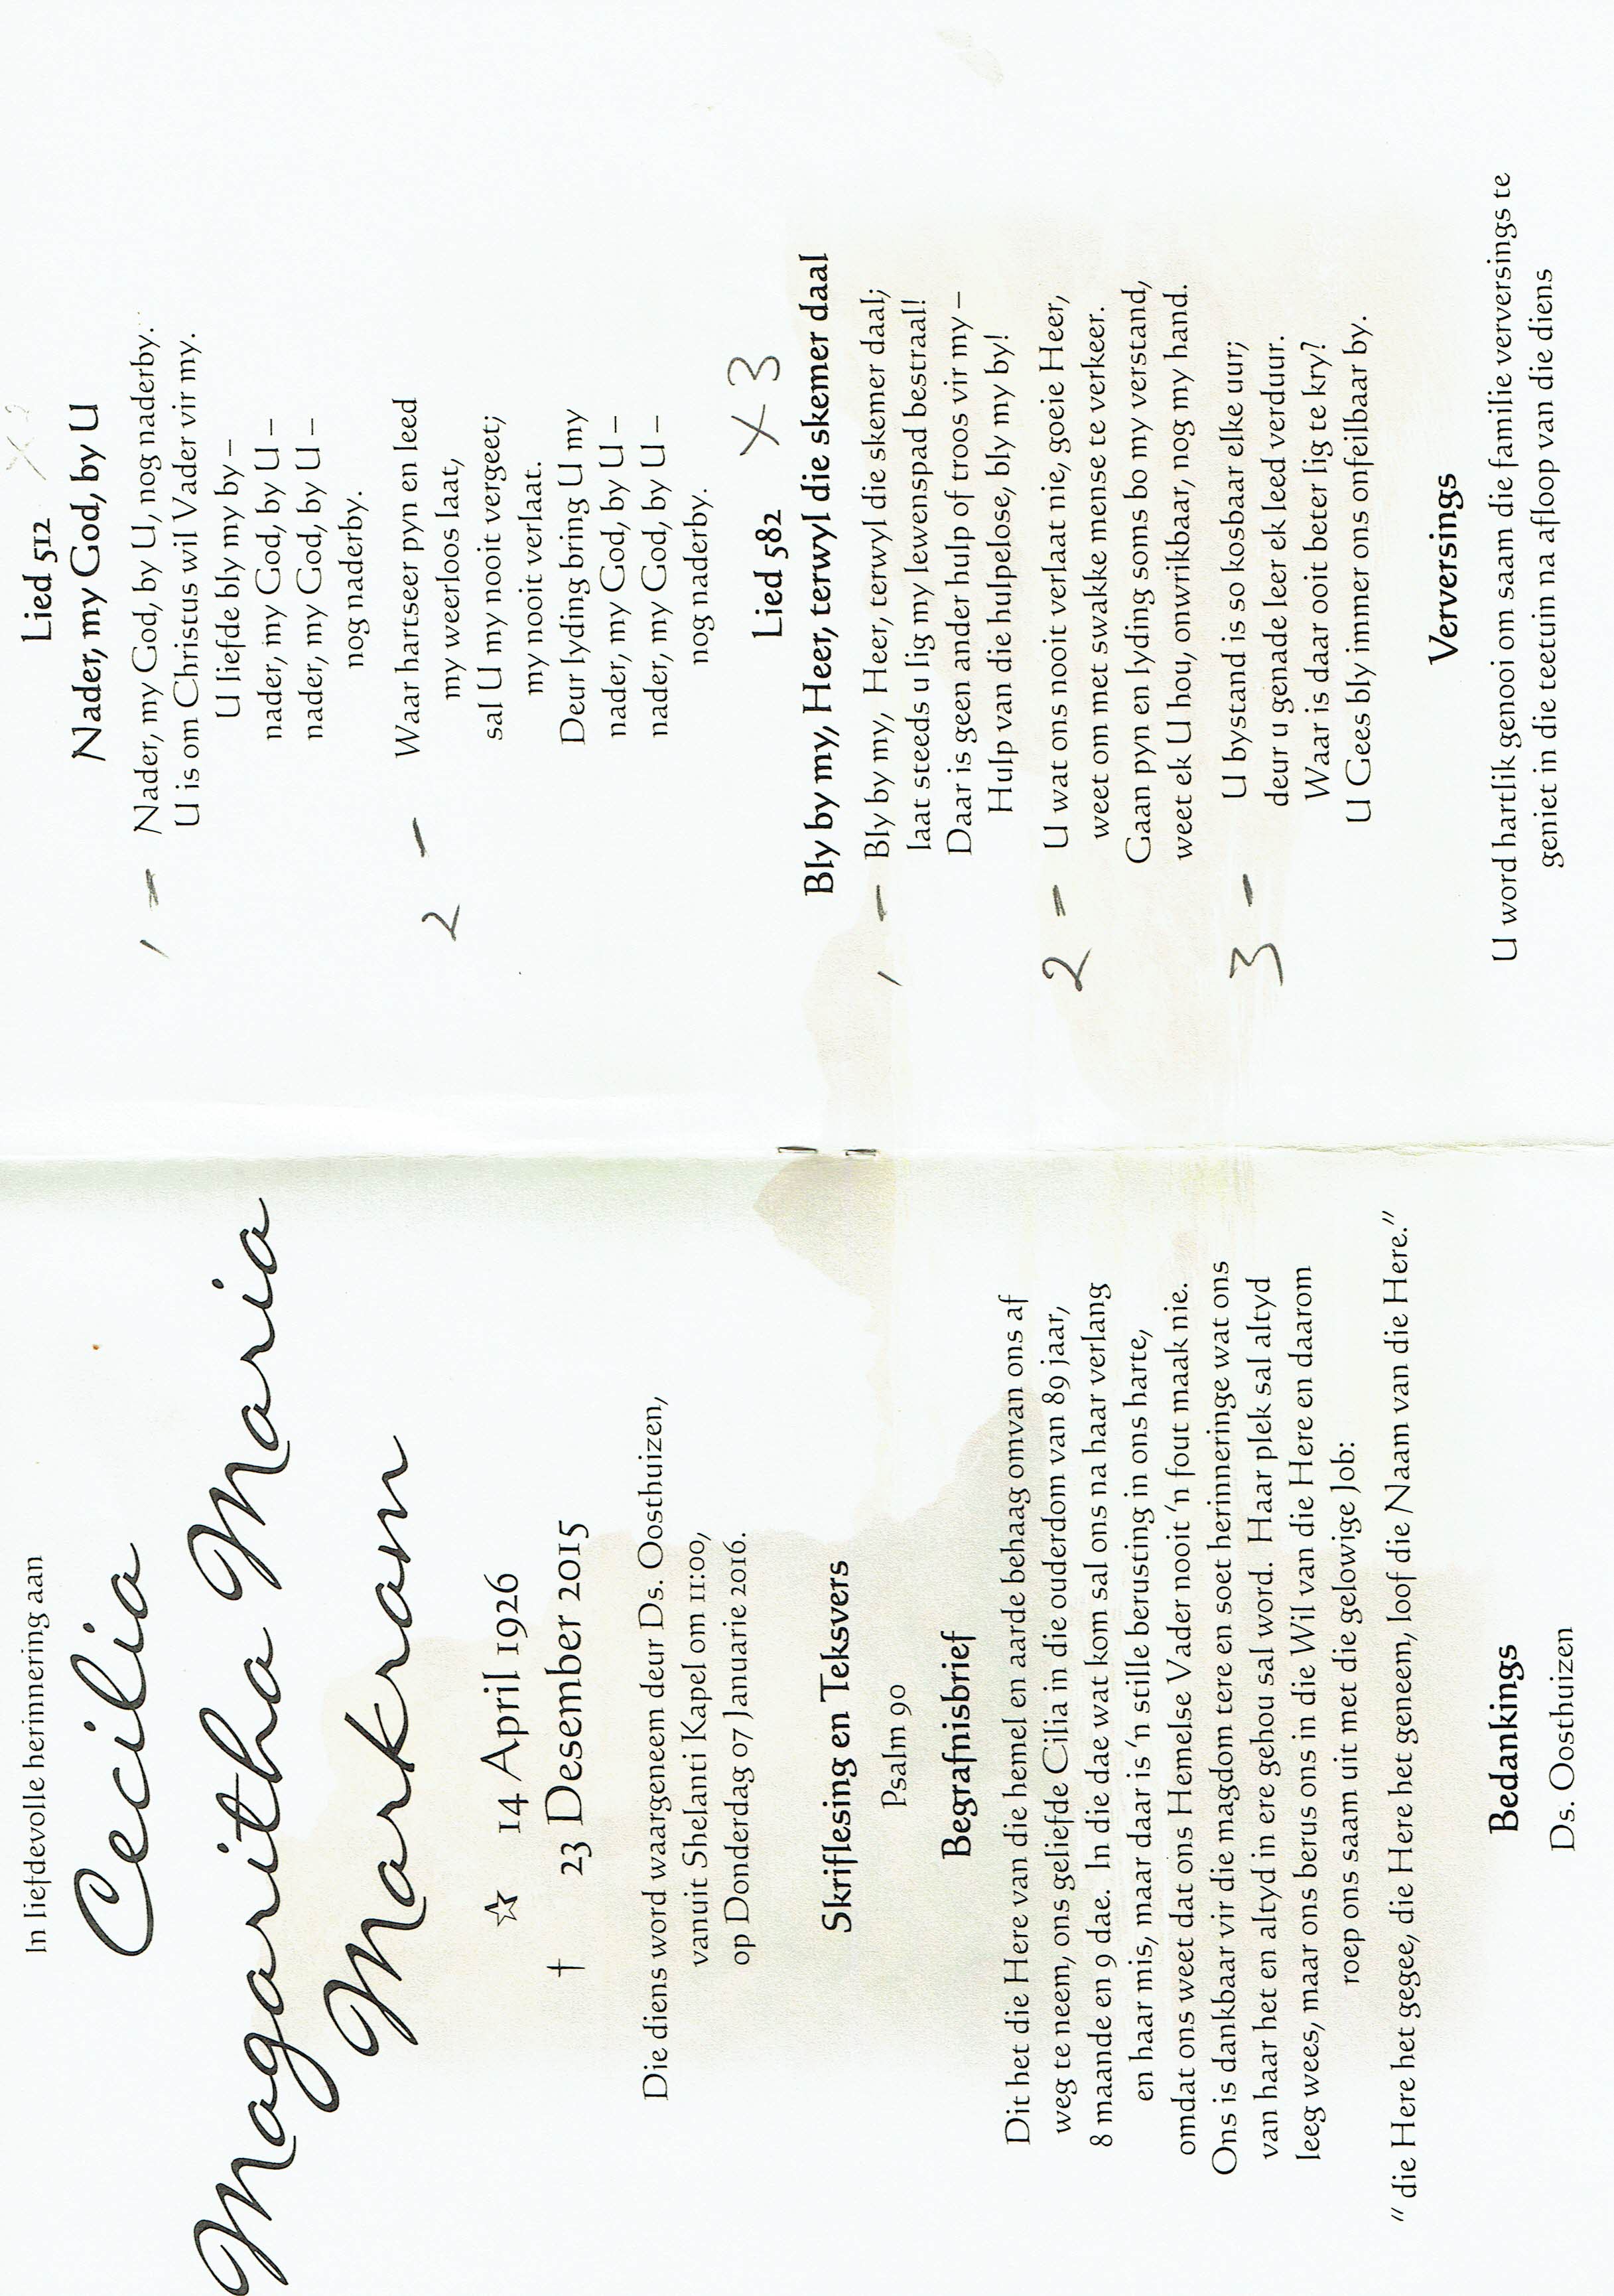 In liefdevolle herinnering aan
Cecilia
Magaritha Maria
Markram
☆ 14 April 1926
† 23 Desember 2015
Die diens word waargeneem deur Ds. Oosthuizen,
vanuit Shelanti Kapel om 11:00,
op Donderdag 07 Januarie 2016.
Skriflesing en Teksvers
Psalm 90
Begrafnisbrief
Dit het die Here van die hemel en aarde behaag omvan ons af
weg te neem, ons geliefde Cilia in die ouderdom van 89 jaar,
8 maande en 9 dae. In die dae wat kom sal ons na haar verlang
en haar mis, maar daar is 'n stille berusting in ons harte,
omdat ons weet dat ons Hemelse Vader nooit 'n fout maak nie.
Ons is dankbaar vir die magdom tere en soet herinneringe wat ons
van haar het en altyd in ere gehou sal word. Haar plek sal altyd
leeg wees, maar ons berus ons in die Wil van die Here en daarom
roep ons saam uit met die gelowige Job:
" die Here het gegee, die Here het geneem, loof die Naam van die Here."
Bedankings
Ds. Oosthuizen
Lied 512
Nader, my God, by U
1 – Nader, my God, by U, nog naderby.
U is om Christus wil Vader vir my.
U liefde bly my by –
nader, my God, by U –
nader, my God, by U –
nog naderby.
2 – Waar hartseer pyn en leed
my weerloos laat,
sal U my nooit vergeet;
my nooit verlaat.
Deur lyding bring U my
nader, my God, by U –
nader, my God, by U –
nog naderby.
Lied 582 x 3
Bly by my, Heer, terwyl die skemer daal
1 – Bly by my, Heer, terwyl die skemer daal;
laat steeds u lig my lewenspad bestraal!
Daar is geen ander hulp of troos vir my –
Hulp van die hulpelose, bly my by!
2 – U wat ons nooit verlaat nie, goeie Heer,
weet om met swakke mense te verkeer.
Gaan pyn en lyding soms bo my verstand,
weet ek U hou, onwrikbaar, nog my hand.
3 – U bystand is so kosbaar elke uur;
deur u genade leer ek leed verduur.
Waar is daar ooit beter lig te kry?
U Gees bly immer ons onfeilbaar by.
Verversings
U word hartlik genooi om saam die familie verversings te
geniet in die teetuin na afloop van die diens